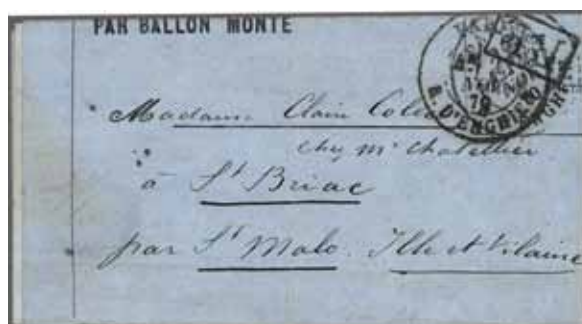 PAR BALLON MONTÉ
PARIS
R. D'ENGHIEN
70
Madame Clair
chez Mr Chatellier
à St Briac
par St Malo. Ille et Vilaine